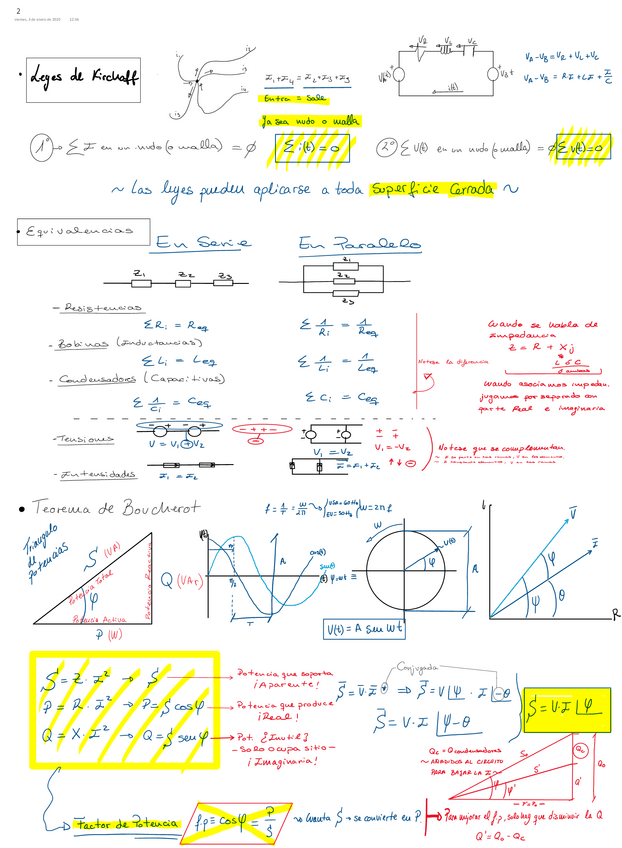 2
viernes, 3 de enero de 2025
• Leyes de Kirchoff
i₁
i₂
i₃
i₄
I₁+I₄ = I₂+I₃+I₅
Entra = Sale
Ya sea nudo o malla
V_R V_L V_C
V_A t
V_B t
i(t)
V_A-V_B = V_R+V_L+V_C
1° → Σ I en un nudo (o malla) = 0
Σ i(t) = 0
2° Σ V(t) en un nudo (o malla) = 0
Σ v(t) = 0
~ Las leyes pueden aplicarse a toda Superficie Cerrada ~
• Equivalencias
En Serie
En Paralelo
Z₁ Z₂ Z₃
Z₁
Z₂
Z₃
- Resistencias
ΣRi = Req
Σ 1/Ri = 1/Req
- Bobinas (Inductancias)
ΣLi = Leq
Σ 1/Li = 1/Leq
- Condensadores (Capacitivas)
Σ 1/Ci = Ceq
ΣCi = Ceq
Notese la diferencia
Cuando se habla de
impedancia
Z = R + Xj
L ó C
ó ambas
Cuando asociamos impedan.
jugamos por separado con
parte Real e imaginaria
- Tensiones
V = V₁ + V₂
V₁ = V₂
V₁ = -V₂
- Intensidades
I₁ = I₂
I = I₁ + I₂
Notese que se complementan
• Teorema de Boucherot
f = 1/T = W/2π ~> USA = 60 Hz
EU = 50 Hz
W = 2πf
Triangulo
de
Potencias
S (VA)
Potencia Total
φ
Potencia Activa
P (W)
Potencia Reactiva
Q (VAr)
cos(t)
sen(t)
φ = wt
A
T
W
V(t)
φ
A
V(t) = A sen Wt
V
I
φ
ψ
θ
R
S = Z · I² → S
P = R · I² → P = S cosφ
Q = X · I² → Q = S senφ
Potencia que soporta
¡Aparente!
Potencia que produce
¡Real!
Pot. [Inutil]
- Solo ocupa sitio -
¡Imaginaria!
Conjugada
S = V · I* ⇒ S = V∠ψ · I∠-θ
S = V · I ∠ψ-θ
S = V·I ∠φ
Qc = Q condensadores
~ AÑADIDOS AL CIRCUITO
PARA BAJAR LA I ~
S₀
S'
φ
φ'
Qc
Q'
Q₀
P = P₀
Factor de Potencia
fp ≡ cosφ = P/S
~> Cuanta S → se convierte en P
Para mejorar el fp, solo hay que disminuir la Q
Q' = Q₀ - Qc